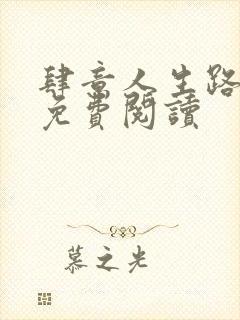 肆意人生路
免費閱讀
慕之光